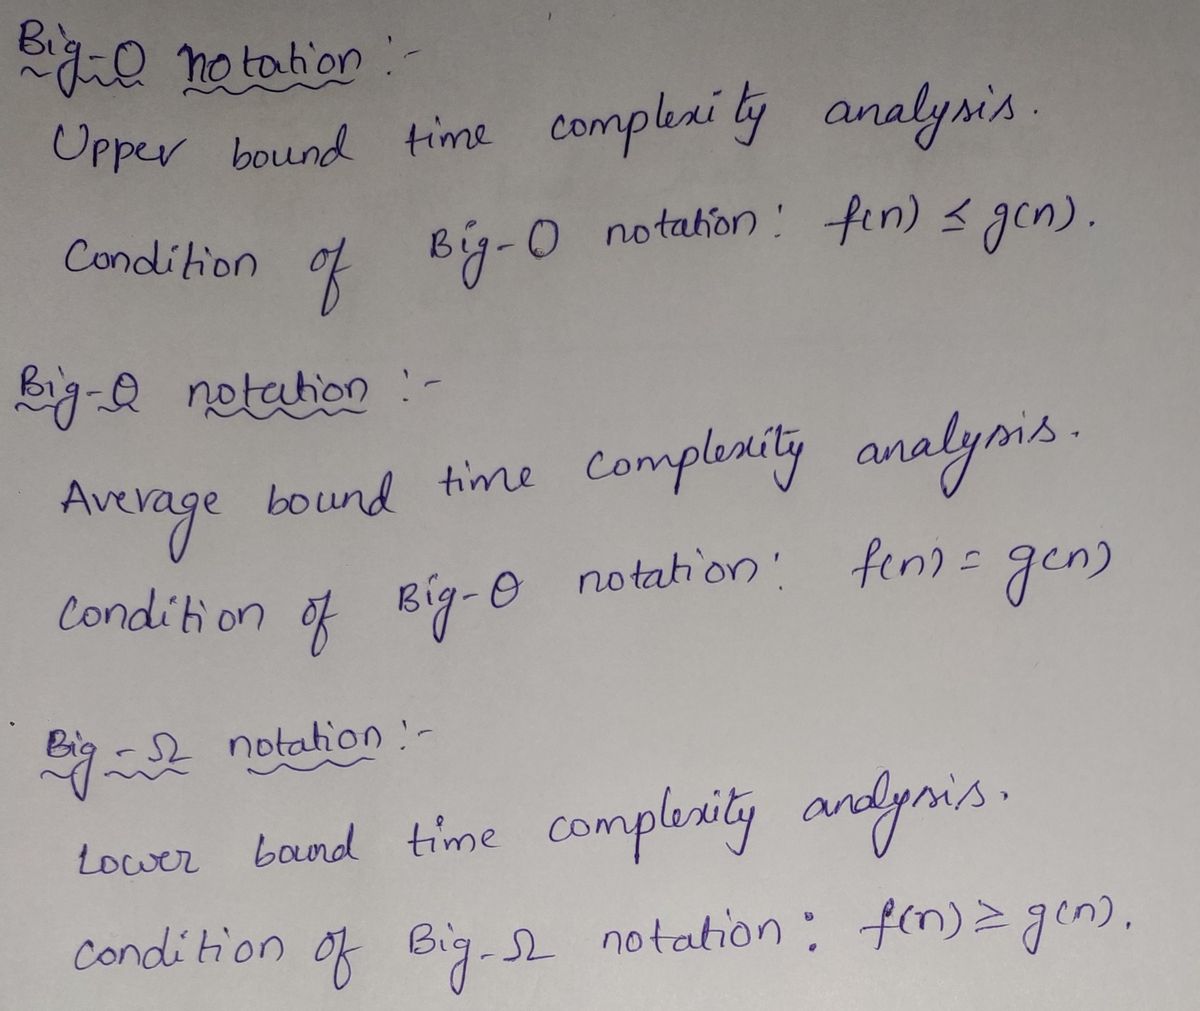 Big-O notation :-
Upper bound time complexity analysis.
Condition of Big-O notation: f(n) ≤ g(n).
Big-Θ notation :-
Average bound time complexity analysis.
Condition of Big-Θ notation: f(n) = g(n)
Big-Ω notation :-
Lower bound time complexity analysis.
Condition of Big-Ω notation: f(n) ≥ g(n).